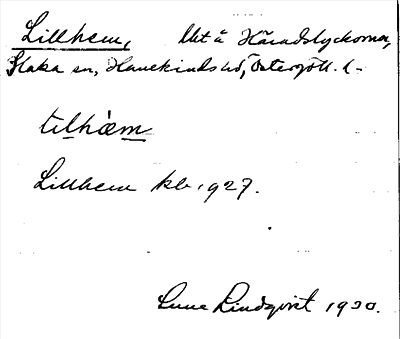 Lillhem, lht å Häradslyckorna,
Slaka sn, Hanekinds hd, Östergötl. l.
lilhæm
Lillhem kb. 1927.
Sune Lindqvist 1930.